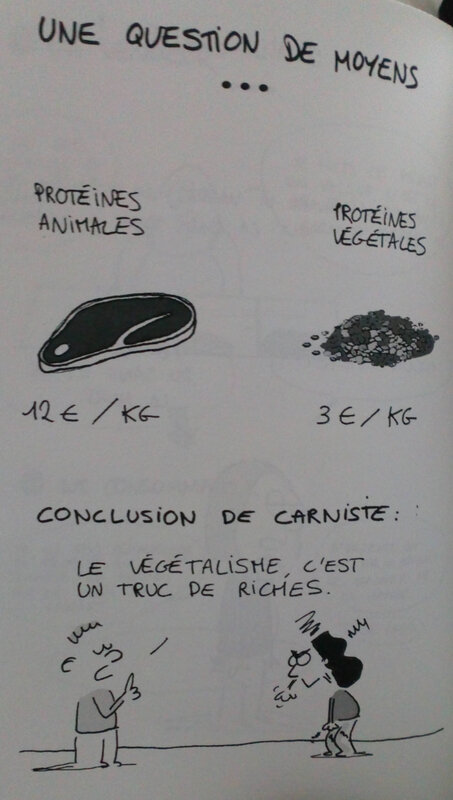 UNE QUESTION DE MOYENS
...
PROTÉINES
ANIMALES
PROTÉINES
VÉGÉTALES
12 € / KG
3 € / KG
CONCLUSION DE CARNISTE :
LE VÉGÉTALISME, C'EST
UN TRUC DE RICHES.